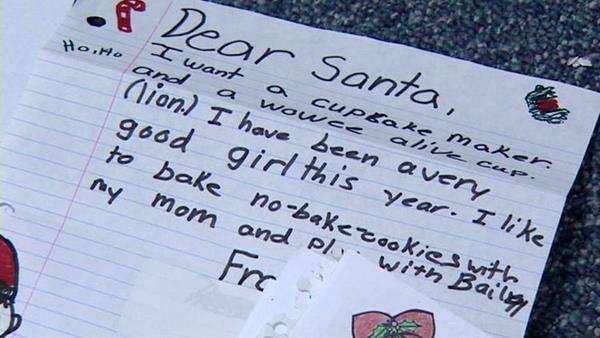 Dear Santa,
Ho,Ho
I want a cupcake maker.
and a wowee alive cup.
(lion.) I have been a very
good girl this year. I like
to bake no-bake-cookies with
my mom and with Bailey